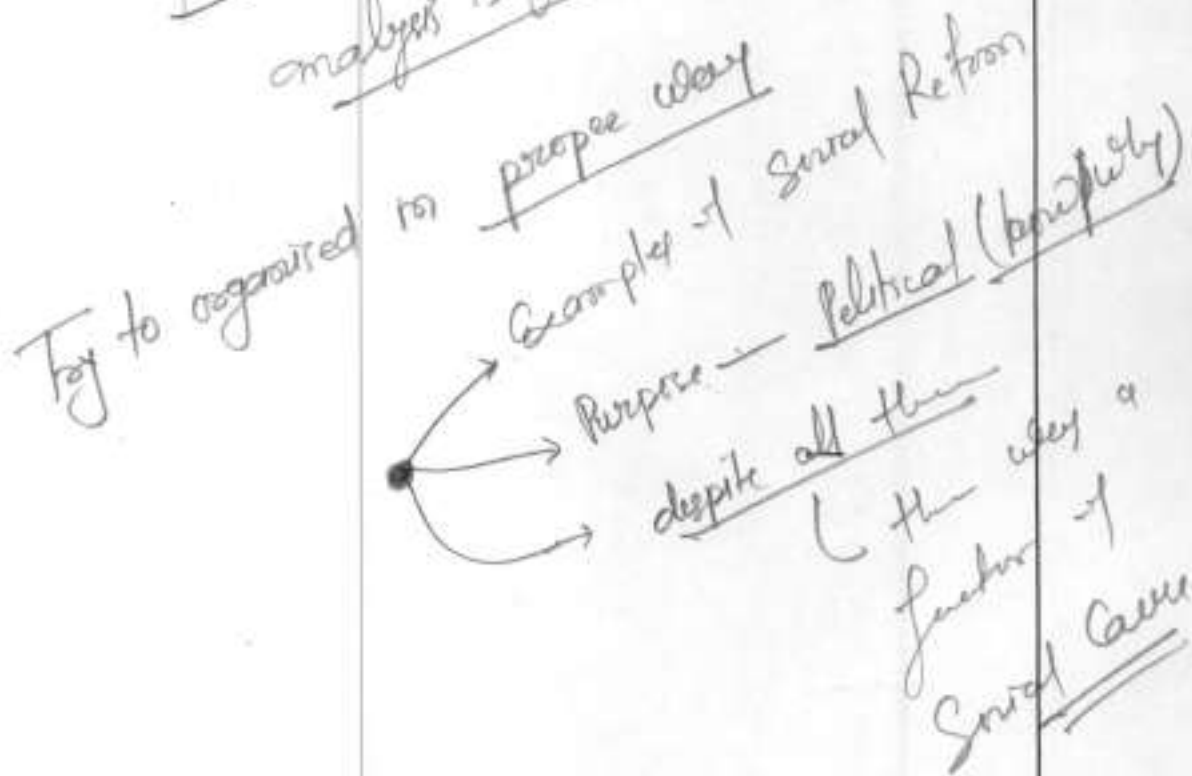 analysis
Try to organised in proper way
Examples of Social Reform
Purpose — Political (
despite all them
a
function of
Social Cause